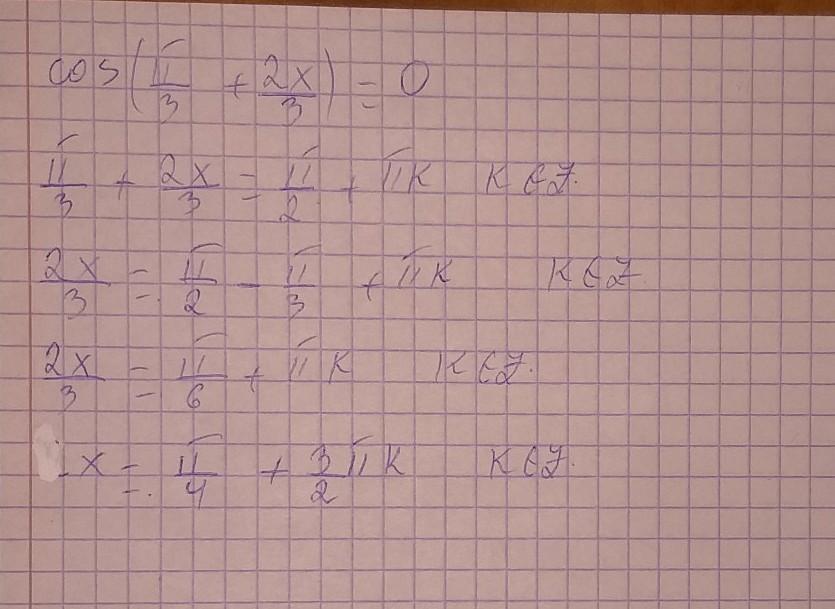 cos(π/3 + 2x/3) = 0
π/3 + 2x/3 = π/2 + πk k ∈ Z.
2x/3 = π/2 - π/3 + πk k ∈ Z
2x/3 = π/6 + πk k ∈ Z.
x = π/4 + 3/2 πk k ∈ Z.